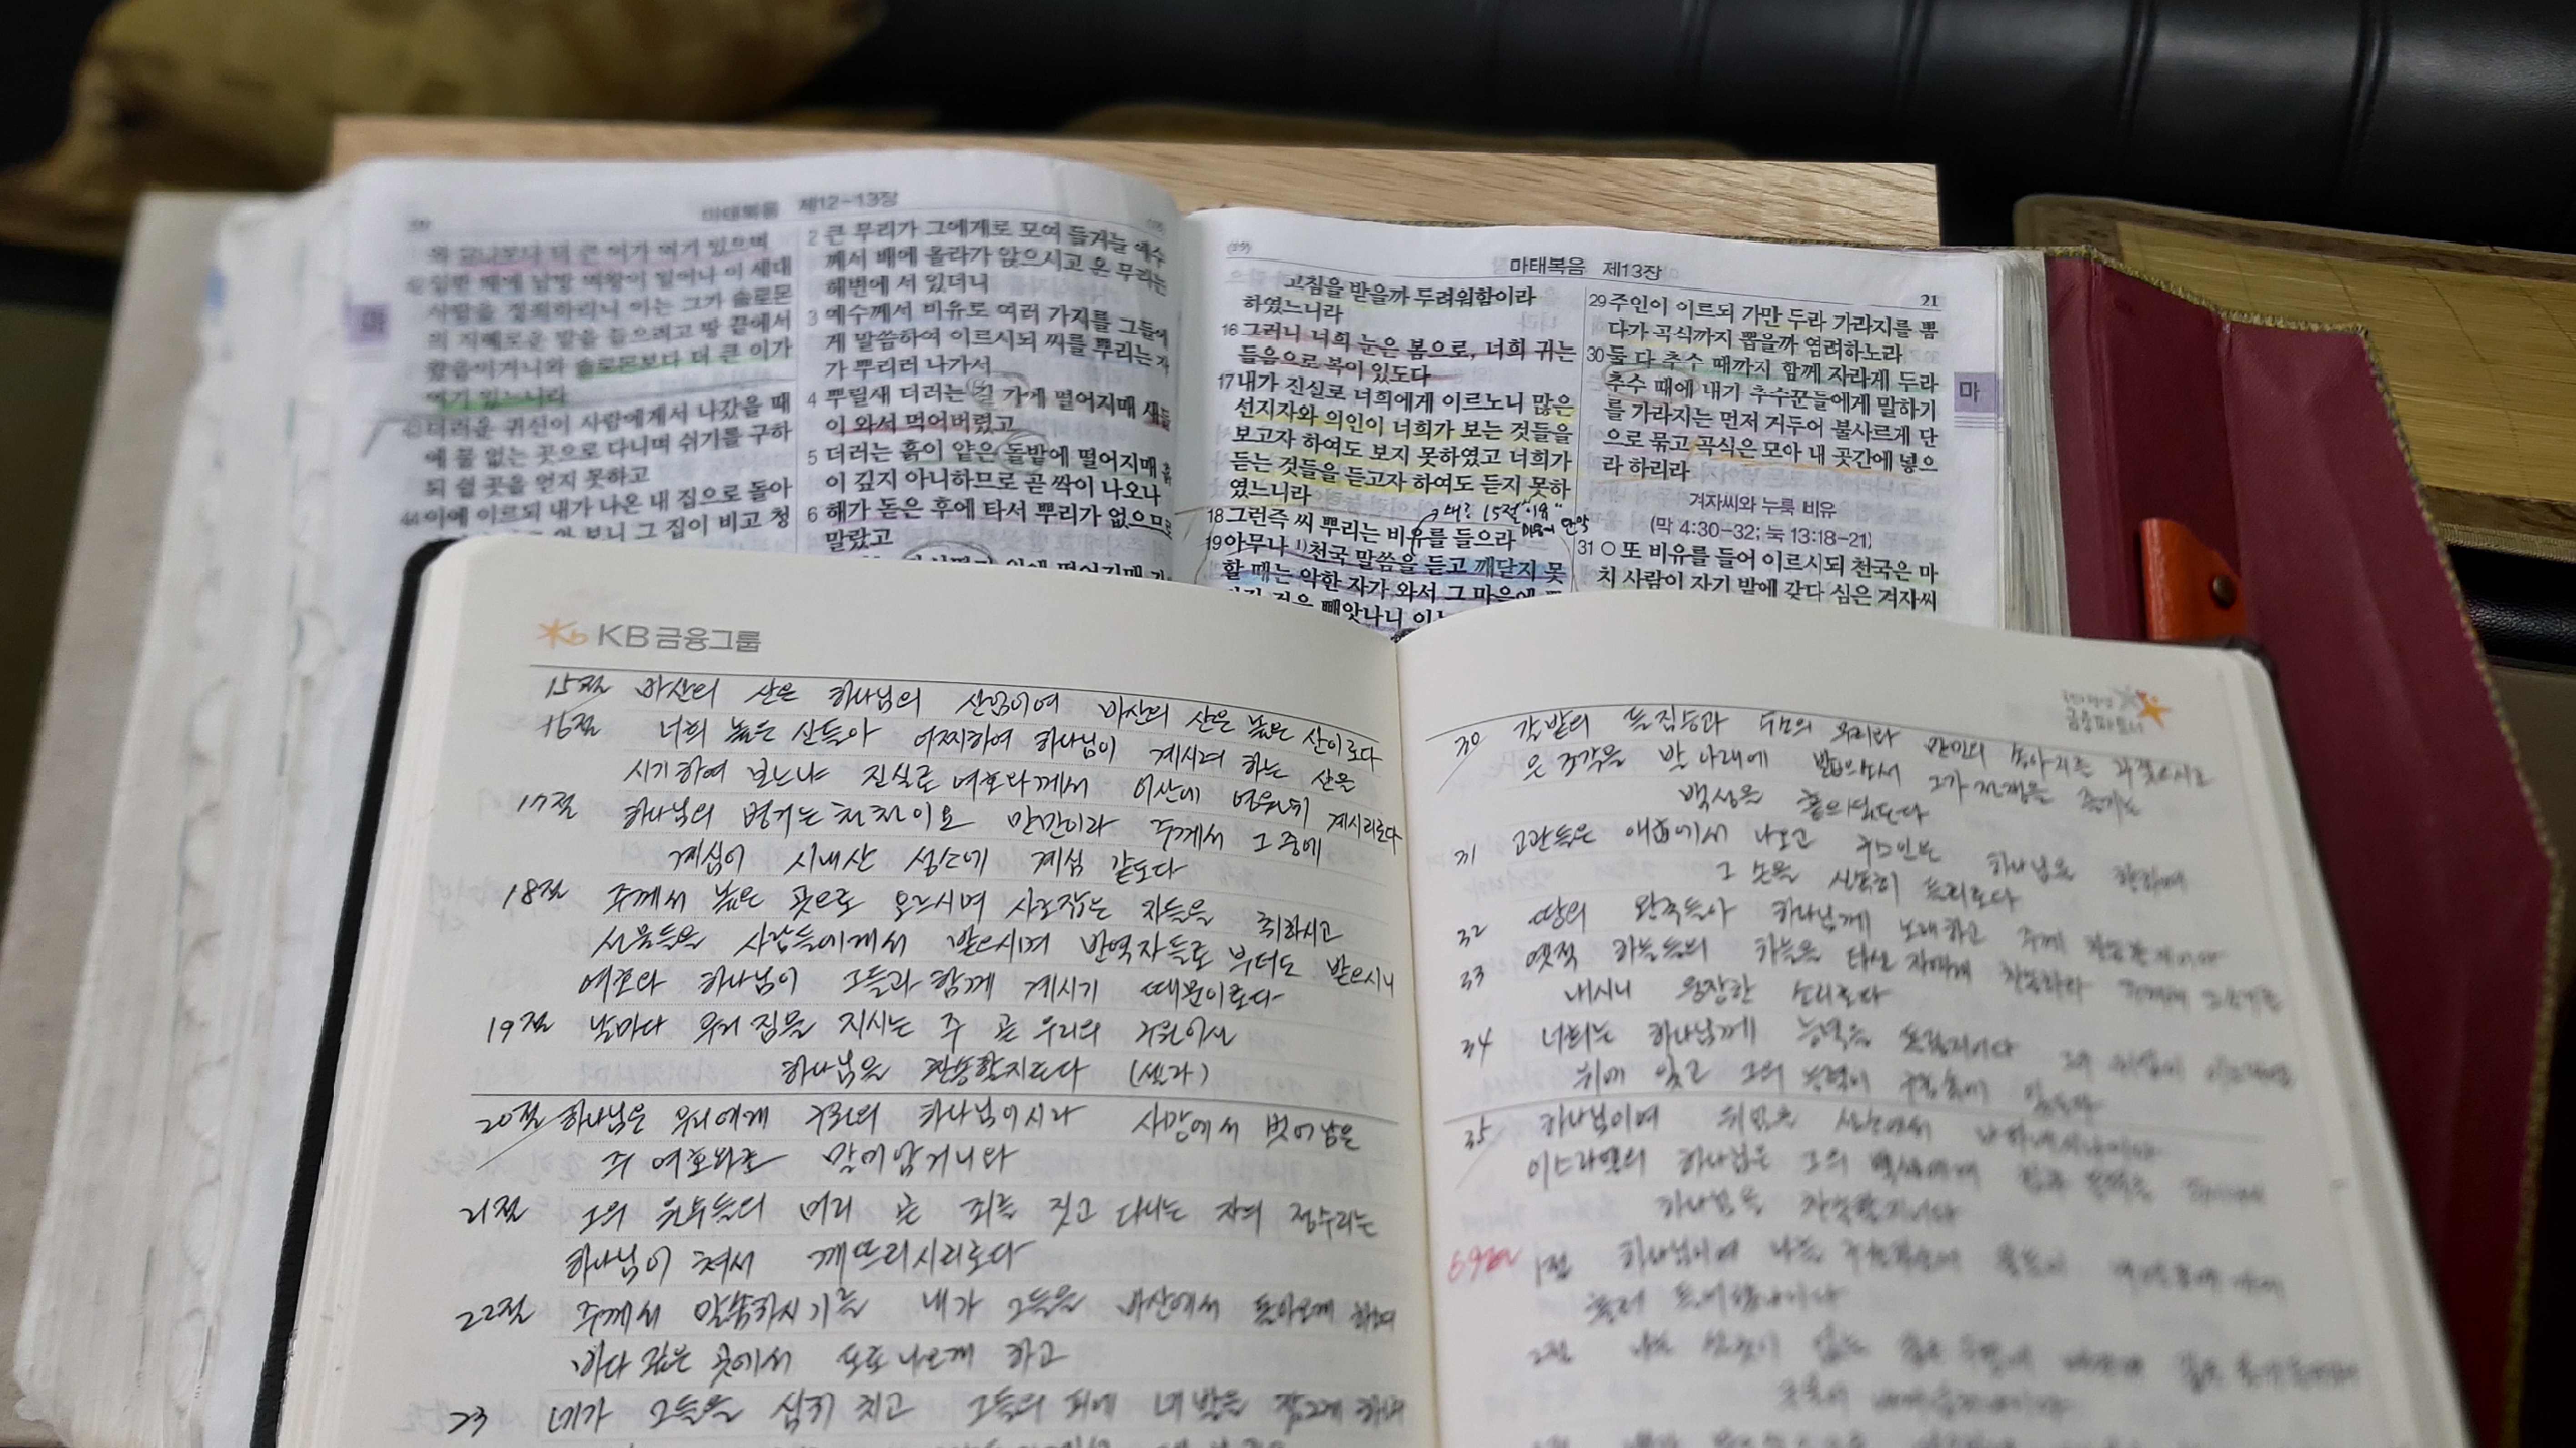 마태복음 제12-13장
솔로몬보다 더 큰 이가
여기 있느니라
더러운 귀신이 사람에게서 나갔을 때
에 물 없는 곳으로 다니며 쉬기를 구하
되 쉴 곳을 얻지 못하고
44 이에 이르되 내가 나온 내 집으로 돌아
보니 그 집이 비고 청
마
2 큰 무리가 그에게로 모여 들거늘 예수
께서 배에 올라가 앉으시고 온 무리는
해변에 서 있더니
3 예수께서 비유로 여러 가지를 그들에
게 말씀하여 이르시되 씨를 뿌리는 자
가 뿌리러 나가서
4 뿌릴새 더러는 길 가에 떨어지매 새들
이 와서 먹어버렸고
5 더러는 흙이 얕은 돌밭에 떨어지매 흙
이 깊지 아니하므로 곧 싹이 나오나
6 해가 돋은 후에 타서 뿌리가 없으므로
말랐고
마태복음 제13장
21
고침을 받을까 두려워함이라
하였느니라
16 그러나 너희 눈은 봄으로, 너희 귀는
들음으로 복이 있도다
17 내가 진실로 너희에게 이르노니 많은
선지자와 의인이 너희가 보는 것들을
보고자 하여도 보지 못하였고 너희가
듣는 것들을 듣고자 하여도 듣지 못하
였느니라
15절
18 그런즉 씨 뿌리는 비유를 들으라
19 아무나 1)천국 말씀을 듣고 깨닫지 못
할 때는 악한 자가 와서 그 마음에
것을 빼앗나니
29 주인이 이르되 가만 두라 가라지를 뽑
다가 곡식까지 뽑을까 염려하노라
30 둘 다 추수 때까지 함께 자라게 두라
추수 때에 내가 추수꾼들에게 말하기
를 가라지는 먼저 거두어 불사르게 단
으로 묶고 곡식은 모아 내 곳간에 넣으
라 하리라
겨자씨와 누룩 비유
(막 4:30-32; 눅 13:18-21)
31 ○ 또 비유를 들어 이르시되 천국은 마
치 사람이 자기 밭에 갖다 심은 겨자씨
마
KB 금융그룹
15절 바산의 산은 하나님의 산임이여 바산의 산은 높은 산이로다
16절 너희 높은 산들아 어찌하여 하나님이 계시려 하는 산을
시기하여 보느냐 진실로 여호와께서 이산에 영원히 계시리로다
17절 하나님의 병거는 천천이요 만만이라 주께서 그 중에
계심이 시내산 성소에 계심 같도다
18절 주께서 높은 곳으로 오르시며 사로잡은 자들을 취하시고
선물들을 사람들에게서 받으시며 반역자들로 부터도 받으시니
여호와 하나님이 그들과 함께 계시기 때문이로다
19절 날마다 우리 짐을 지시는 주 곧 우리의 구원이신
하나님을 찬송할지로다 (셀라)
20절 하나님은 우리에게 구원의 하나님이시라 사망에서 벗어남은
주 여호와로 말미암거니와
21절 그의 원수들의 머리 곧 죄를 짓고 다니는 자의 정수리는
하나님이 쳐서 깨뜨리시리로다
22절 주께서 말씀하시기를 내가 그들을 바산에서 돌아오게 하며
바다 깊은 곳에서 도로 나오게 하고
23 네가 그들을 심히 치고 그들의 피에 네 발을 잠그게 하며
금융파트너
30 갈밭의 들짐승과
은 조각을 발 아래에 밟으소서 그가 전쟁을 즐기는
백성을 흩으셨도다
31 고관들은 애굽에서 나오고 구스인은 하나님을 향하여
그 손을 신속히 들리로다
32 땅의 왕국들아 하나님께 노래하고 주께 찬송할지어다
33 옛적 하늘들의 하늘을 타신 자에게 찬송하라
내시니 웅장한 소리로다
34 너희는 하나님께 능력을 돌릴지어다
위에 있고 그의 능력이 구름 속에 있도다
35 하나님이여 위엄을 성소에서 나타내시나이다
이스라엘의 하나님은 그의 백성에게 힘과 능력을 주시나니
하나님을 찬송할지어다
69편 1절 하나님이여 나를 구원하소서
흘러 들어왔나이다
2절